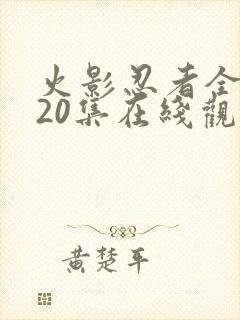 火影忍者全
20集在綫觀
黄楚平